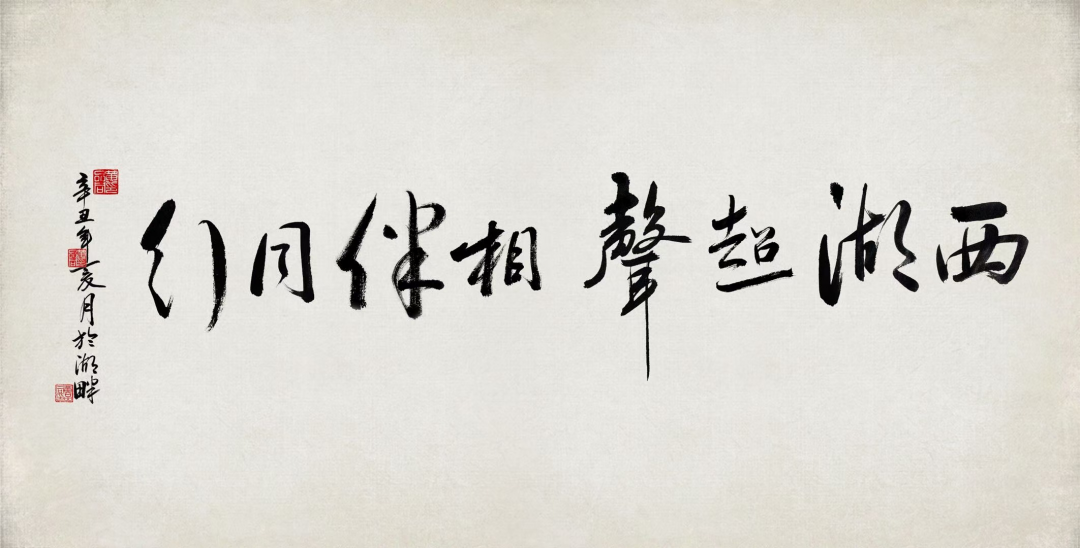 西湖超聲 相伴同行
辛丑年亥月於湖畔